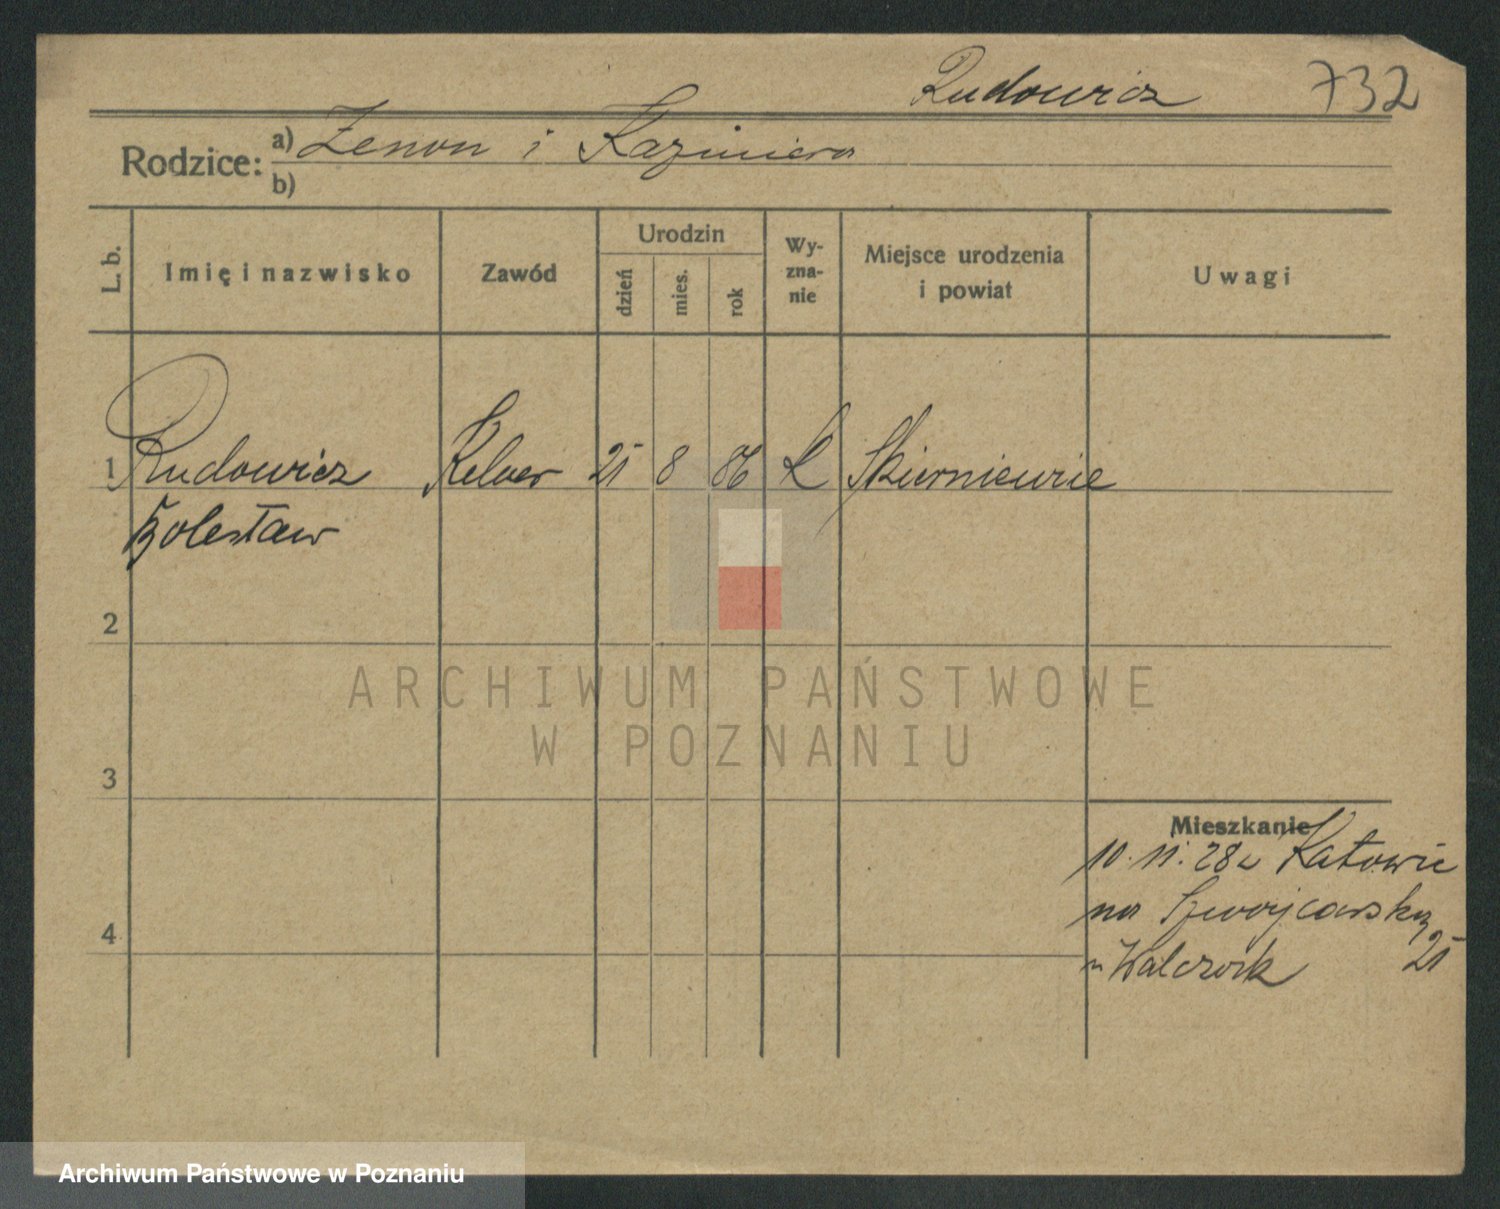 Rudowicz 732
Rodzice: a) Zenon i Kazimiera
b)
L. b. Imię i nazwisko Zawód Urodzin dzień mies. rok Wy-zna-nie Miejsce urodzenia i powiat Uwagi
1 Rudowicz Kelner 25 8 86 k Skierniewice
Bolesław
2
ARCHIWUM PAŃSTWOWE
W POZNANIU
3
Mieszkanie
10.11.28 z Katowic
na Szwajcarską
25
u Walczak
4
Archiwum Państwowe w Poznaniu